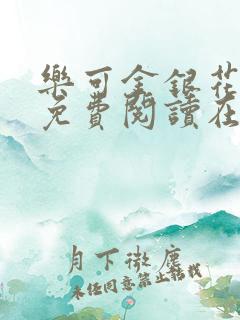 樂可金銀花
免費閱讀在
月下微塵
未经同意禁止转载